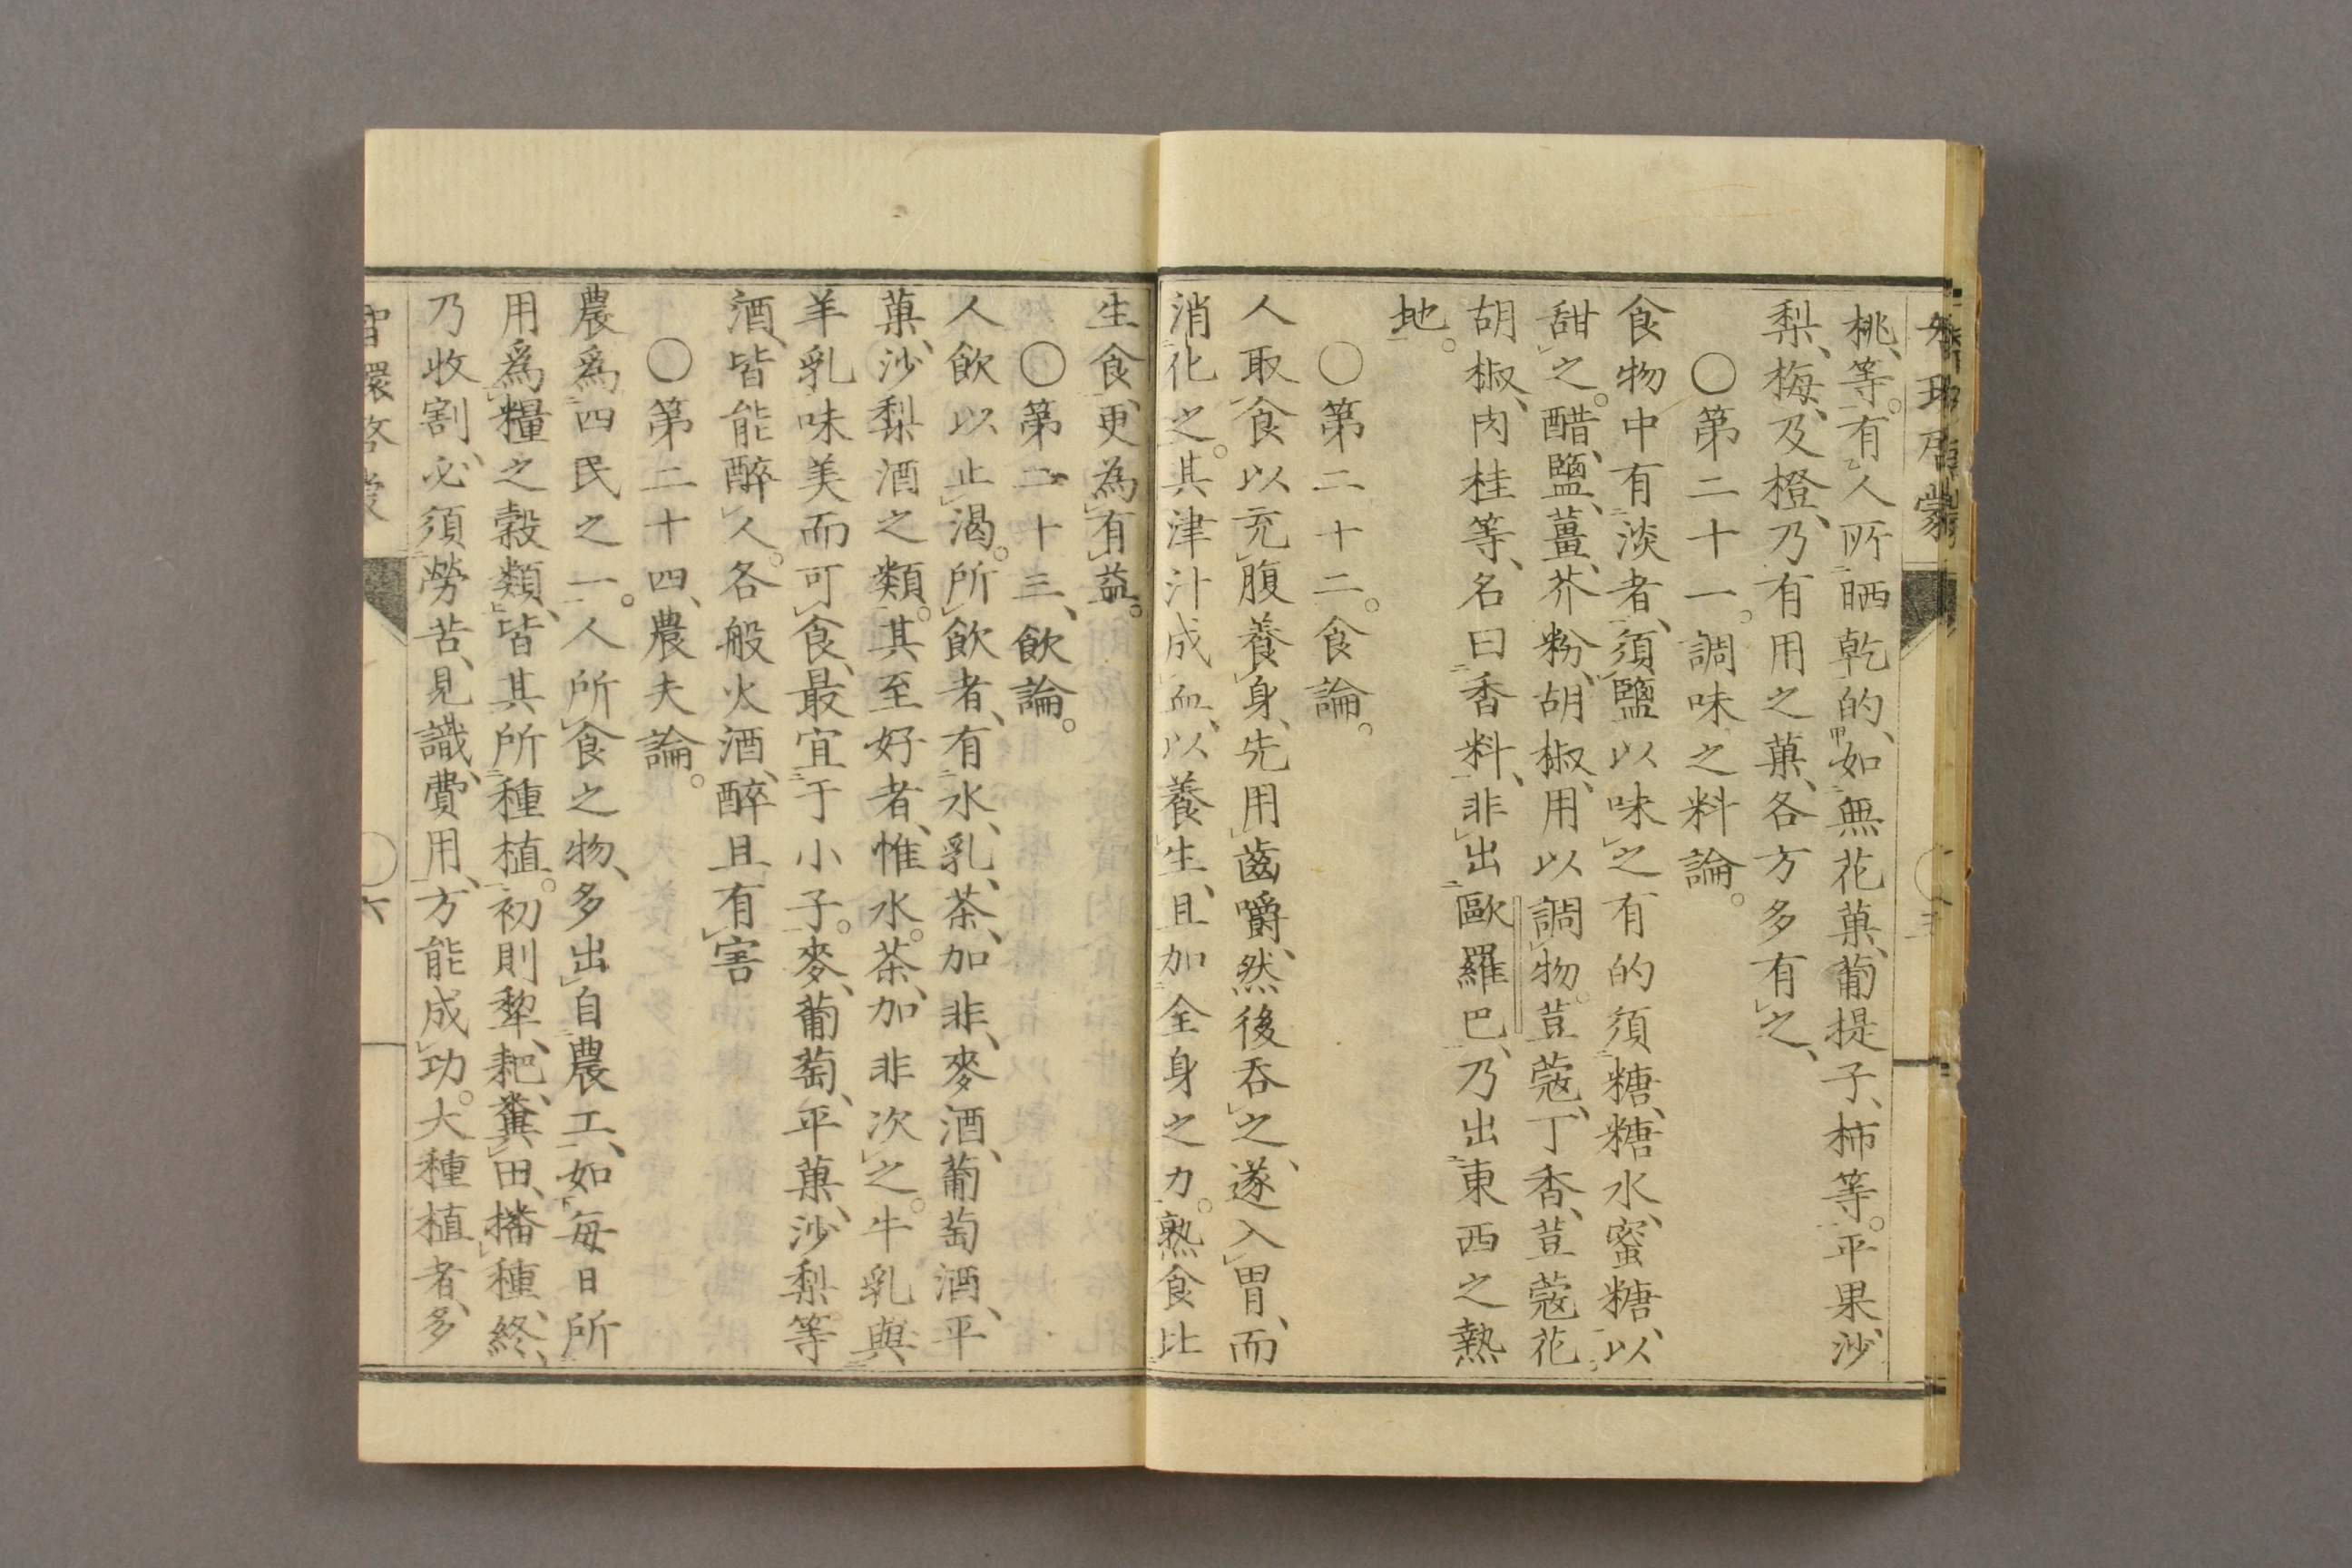 桃、等。有人所晒乾的、如無花菓、葡提子、柿等。平果、沙
梨、梅、及橙、乃有用之菓、各方多有之、
○第二十一。調味之料論。
食物中有淡者、須鹽以味之有的須糖、糖水、蜜糖、以
甜之。醋、鹽、薑、芥粉、胡椒、用以調物。荳蔻、丁香、荳蔻花、
胡椒、肉桂等、名曰香料、非出歐羅巴、乃出東西之熱
地。
○第二十二。食論。
人取食以充腹養身、先用齒嚼、然後吞之、遂入胃、而
消化之。其津汁成血、以養生、且加全身之力。熟食比
生食、更為有益。
○第二十三、飲論。
人飲以止渴。所飲者、有水、乳、茶、加非、麥酒、葡萄酒、平
菓、沙梨酒之類。其至好者、惟水。茶、加非次之。牛乳與
羊乳味美而可食、最宜于小子。麥、葡萄、平菓、沙梨等
酒、皆能醉人。各般火酒、醉且有害
○第二十四、農夫論。
農爲四民之一。人所食之物、多出自農工、如每日所
用爲糧之穀類、皆其所種植。初則犂、耙、糞田、播種、終、
乃收割、必須勞苦、見識、費用、方能成功。大種植者、多
啓蒙
六